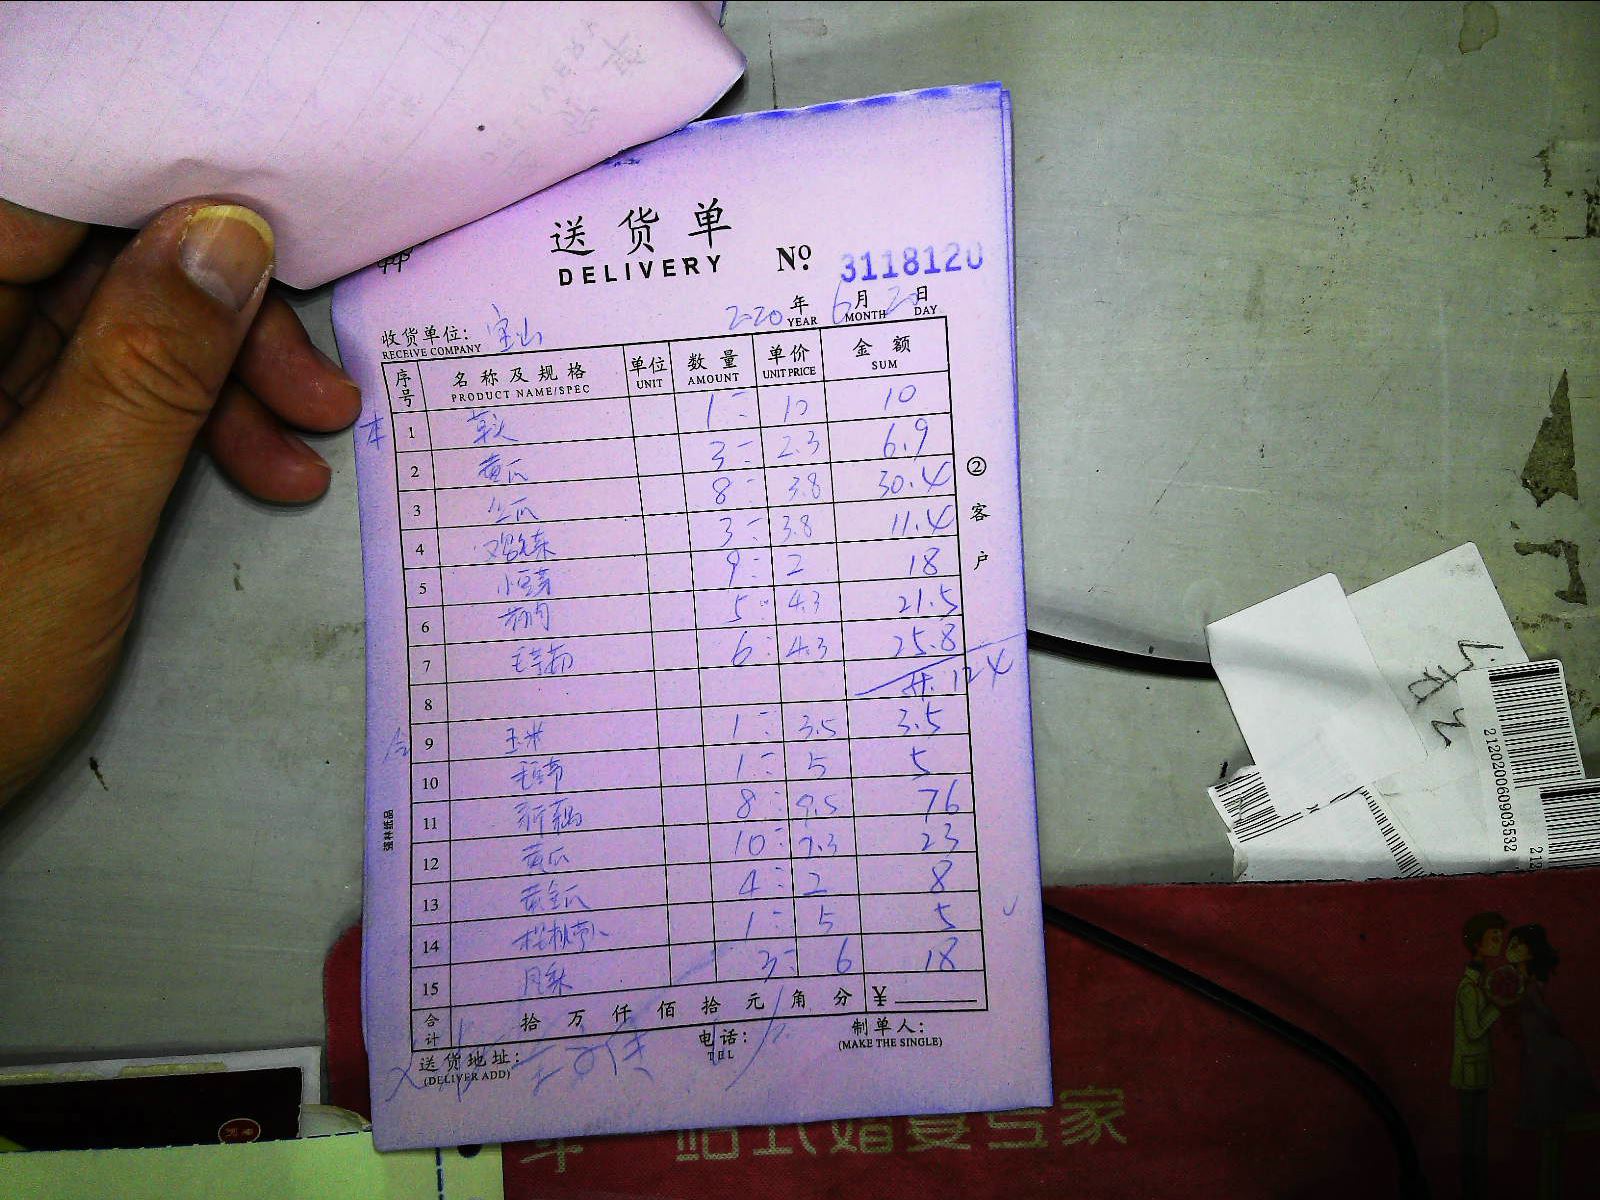 送货单
DELIVERY
No. 3118120
2020年 6月 20日
YEAR MONTH DAY
收货单位: 宝山
RECEIVE COMPANY
序号 名称及规格 单位 数量 单价 金额
PRODUCT NAME/SPEC UNIT AMOUNT UNIT PRICE SUM
本 1 1 10 10
2 黄瓜 3 2.3 6.9
3 8 3.8 30.4
4 3 3.8 11.4
5 小豆芽 9 2 18
6 5 4.3 21.5
7 6 4.3 25.8
8 共.124
9 玉米 1 3.5 3.5
10 1 5 5
11 新藕 8 9.5 76
12 黄瓜 10 2.3 23
13 黄金瓜 4 2 8
14 1 5 5
15 3 6 18
合计 拾 万 仟 佰 拾 元 角 分 ¥
送货地址: 电话: 制单人:
(DELIVER ADD) TEL (MAKE THE SINGLE)
②客户
强林纸品
212020060903532
212
站式婚宴专家